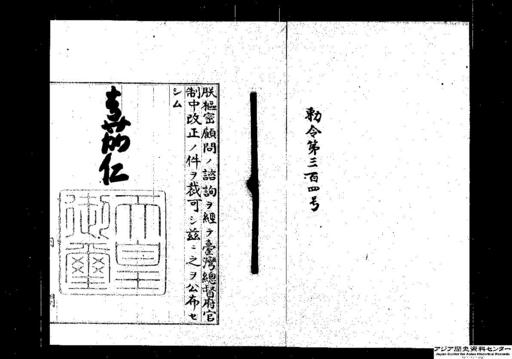 勅令第三百四号
朕樞密顧問ノ諮詢ヲ經テ臺灣總督府官
制中改正ノ件ヲ裁可シ茲ニ之ヲ公布セ
シム
嘉仁
天皇
御璽
アジア歴史資料センター
Japan Center for Asian Historical Records